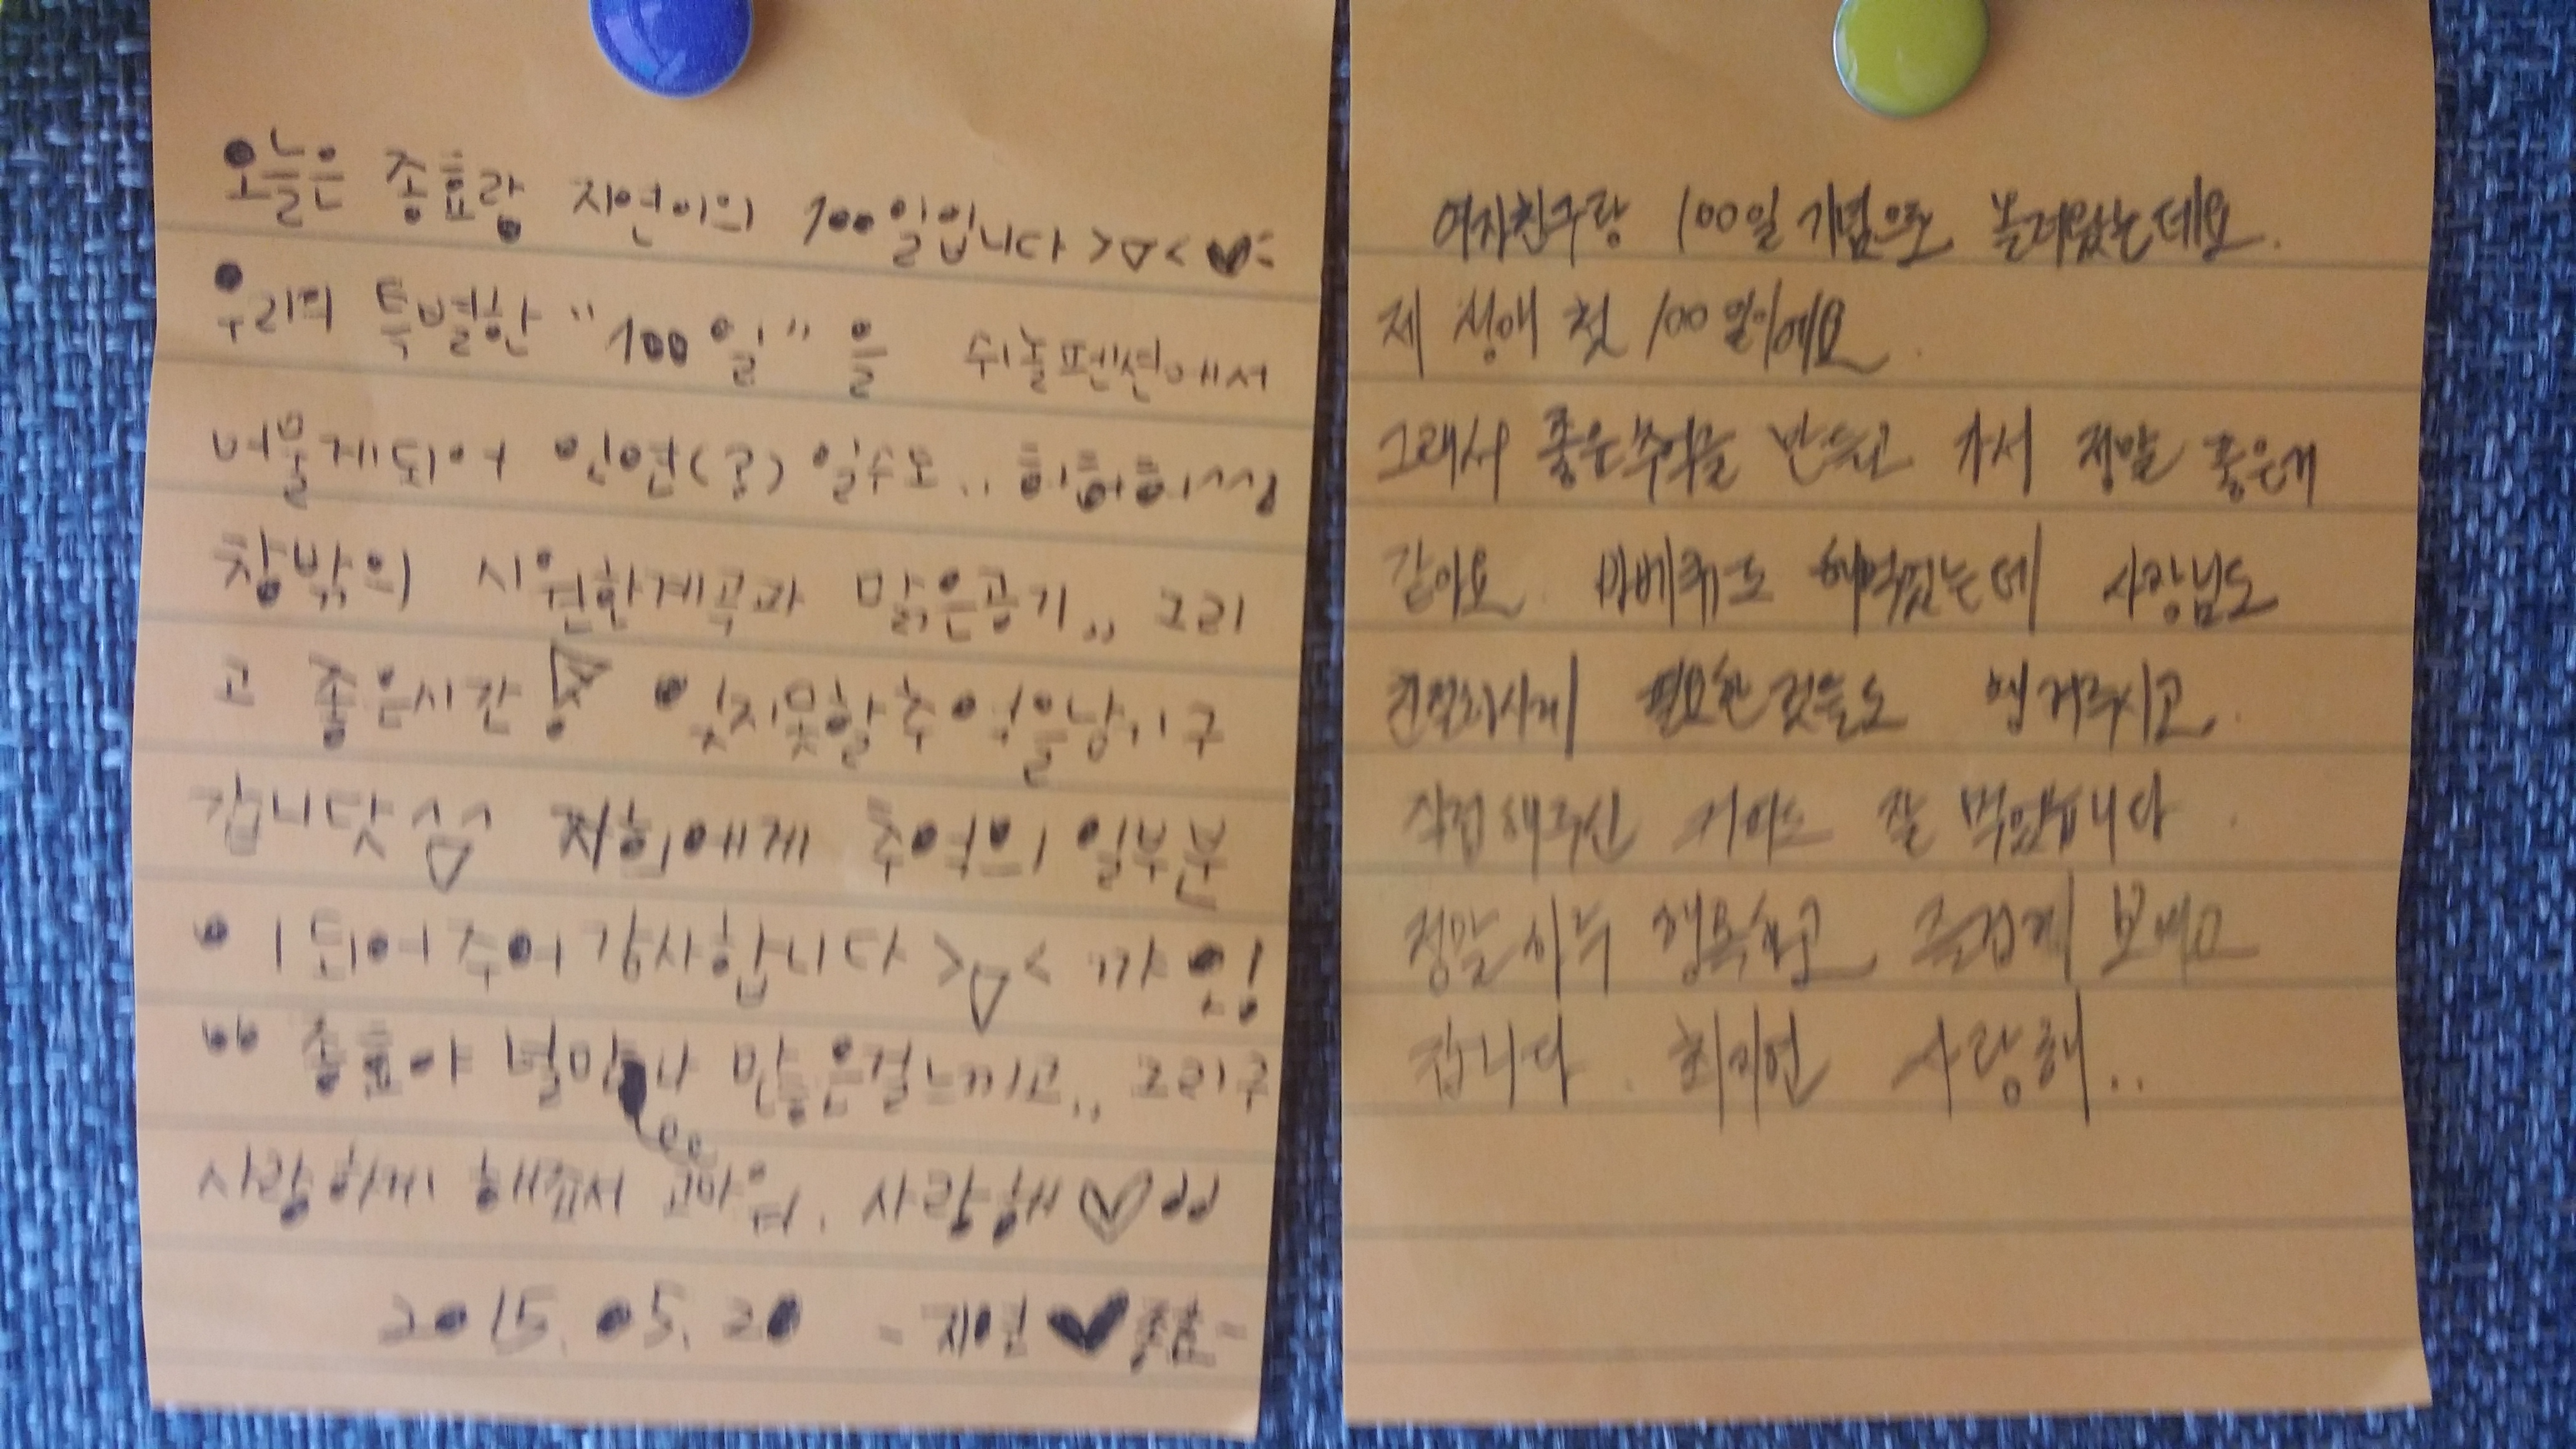 오늘은 종효랑 지연이의 100일입니다 >▽< ♥
우리의 특별한 "100일"을 쉬놀펜션에서
머물게되어 인연(?) 일수도.. 히헤히^^
창밖의 시원한계곡과 맑은공기,, 그리
고 좋은시간 잊지못할추억을남기구
갑니닷 저희에게 추억의 일부분
이 되어주어 감사합니다 >▽< 까임!
" 종효야 널만나 많은걸느끼고,, 그리구
사랑하게 해죠서 고마엉. 사랑해♡"
2015. 05. 20 - 지연♥종효 -
여자친구랑 100일 기념으로 놀러왔는데요.
제 생애 첫 100일이에요.
그래서 좋은추억을 만들고 가서 정말 좋은거
같아요. 바베큐도 해먹었는데 사장님도
친절하시게 필요한것들도 챙겨주시고.
직접해주신 잘 먹었습니다.
정말 하루 행복하고 즐겁게 보내고
갑니다. 최지연 사랑해..